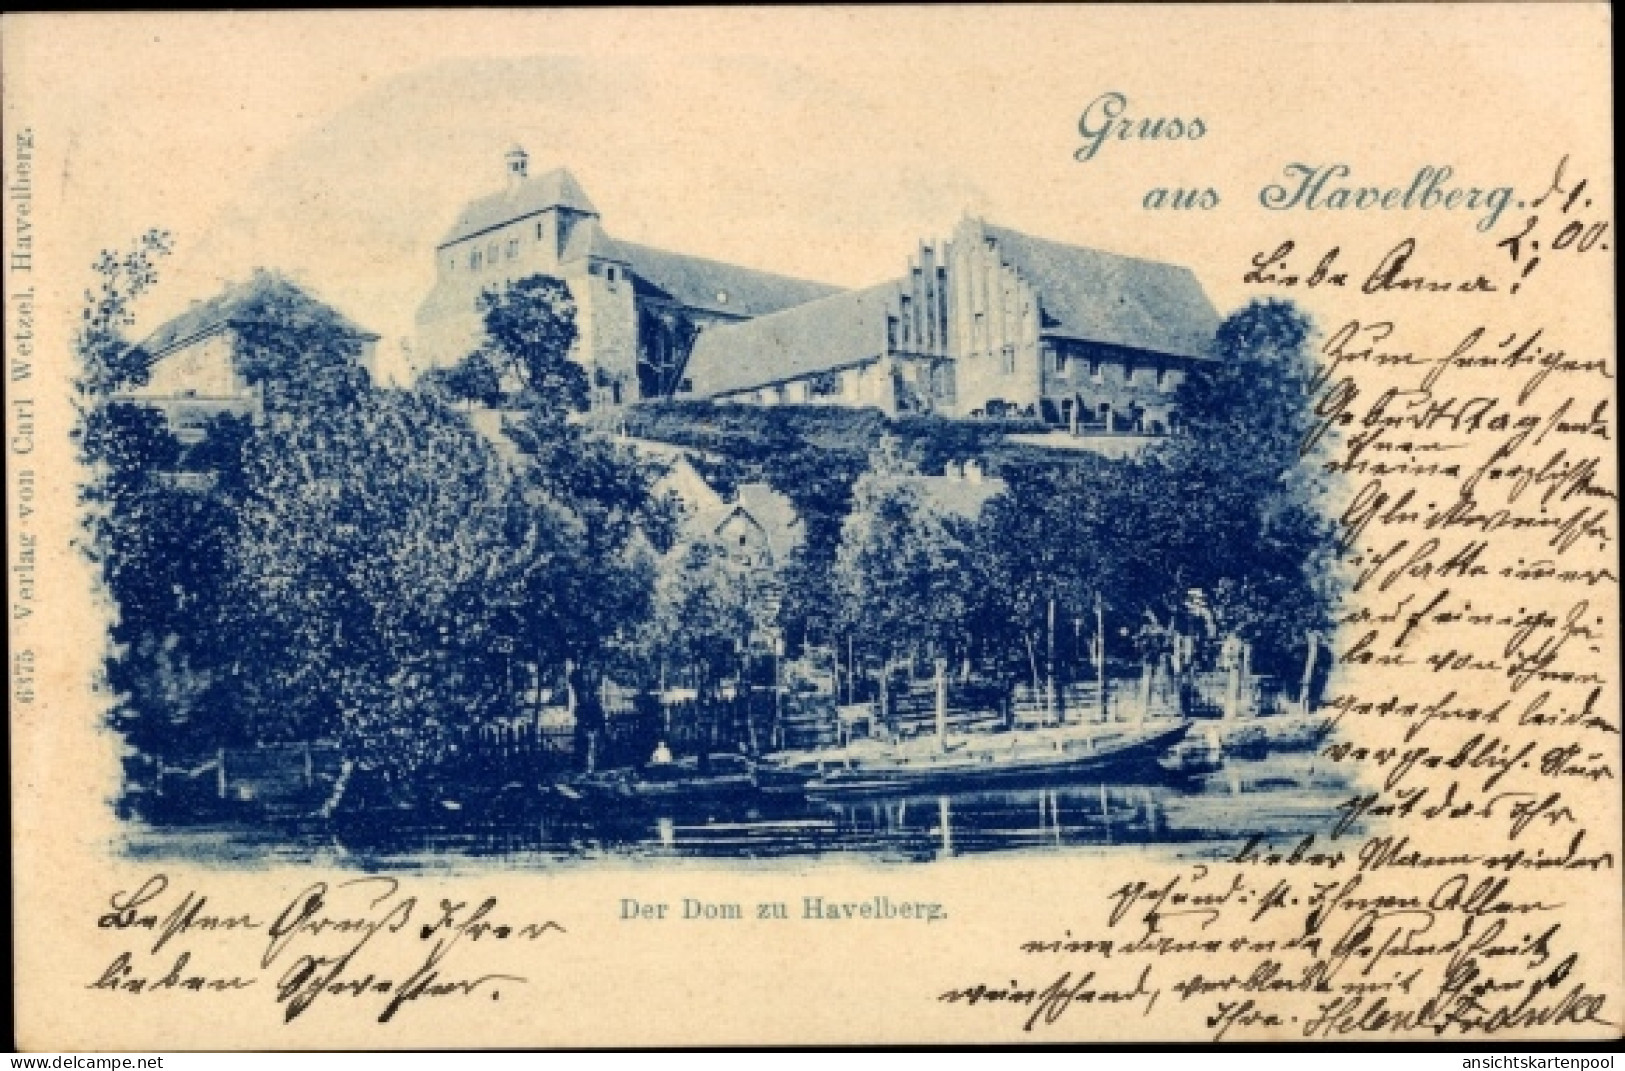 Gruss
aus Havelberg. d. 1.
2. 00.
Liebe Anna!
Zum heutigen
Geburtstag sende
Ihnen
meine herzlichsten
Glückwünsche,
ich hatte immer
auf einige Zei-
len von Ihnen
gerechnet leider
vergeblich. Nur
gut das Ihr
lieber Mann wieder
gesund ist. Ihnen Allen
eine dauernde Gesundheit
wünschend, verbleibe mit Gruß
Ihre Helene Franke
Der Dom zu Havelberg.
Besten Gruß Ihrer
lieben Schwester.
6375 Verlag von Carl Wetzel, Havelberg.
delcampe.net
ansichtskartenpool